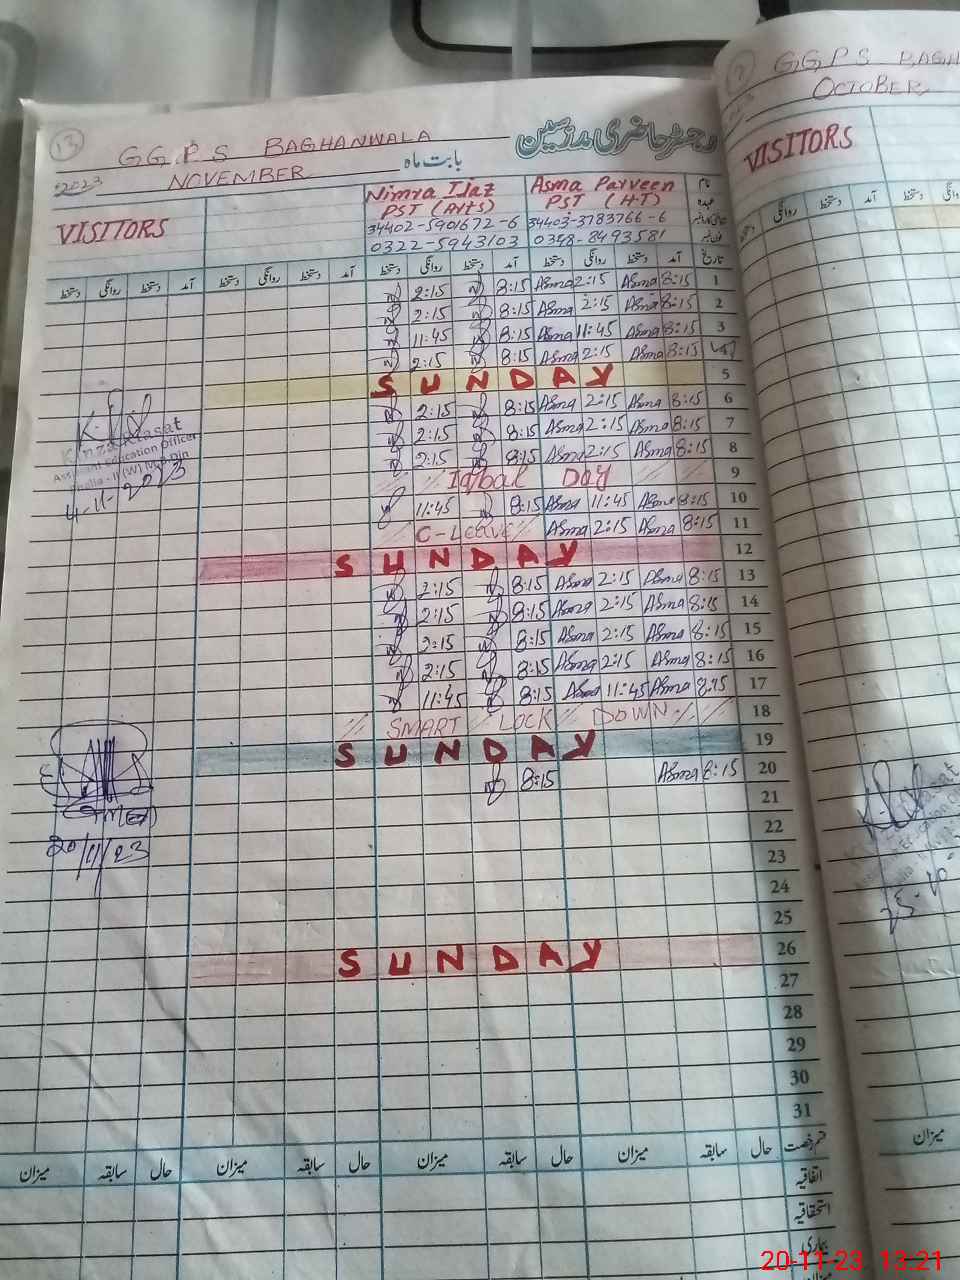 13
G.G.P.S BAGHANWALA
رجسٹر حاضری مدرسین
2023
NOVEMBER
بابت ماہ
VISITORS
Nimra Ijaz
PST (Arts)
34402-5901672-6
0322-5943103
Asma Parveen
PST (HT)
34403-3783766-6
0348-8493581
نام
عہدہ
تاریخ
آمد دستخط روانگی دستخط آمد دستخط روانگی دستخط آمد دستخط روانگی دستخط آمد دستخط روانگی دستخط
2:15 8:15 Asma 2:15 Asma 8:15 1
2:15 8:15 Asma 2:15 Asma 8:15 2
11:45 8:15 Asma 11:45 Asma 8:15 3
2:15 8:15 Asma 2:15 Asma 8:15
SUNDAY 5
2:15 8:15 Asma 2:15 Asma 8:15 6
2:15 8:15 Asma 2:15 Asma 8:15 7
2:15 8:15 Asma 2:15 Asma 8:15 8
Iqbal Day 9
11:45 8:15 Asma 11:45 Asma 8:15 10
C-Leave Asma 2:15 Asma 8:15 11
SUNDAY 12
2:15 8:15 Asma 2:15 Asma 8:15 13
2:15 8:15 Asma 2:15 Asma 8:15 14
2:15 8:15 Asma 2:15 Asma 8:15 15
2:15 8:15 Asma 2:15 Asma 8:15 16
11:45 8:15 Asma 11:45 Asma 8:15 17
SMART LOCK DOWN 18
SUNDAY 19
8:15 Asma 8:15 20
21
22
23
24
25
SUNDAY 26
27
28
29
30
31
Assistant Education Officer
4-11-2023
20/11/23
قسم رخصت حال سابقہ میزان حال سابقہ میزان حال سابقہ میزان
اتفاقیہ
استحقاقیہ
بیماری
میزان
7
G.G.P.S BAGH
OCTOBER
VISITORS
آمد دستخط روانگی دستخط
میزان
20-11-23 13:21